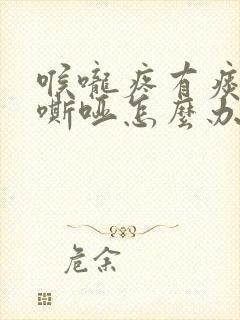 喉嚨疼有痰
嘶啞怎麼办
危余